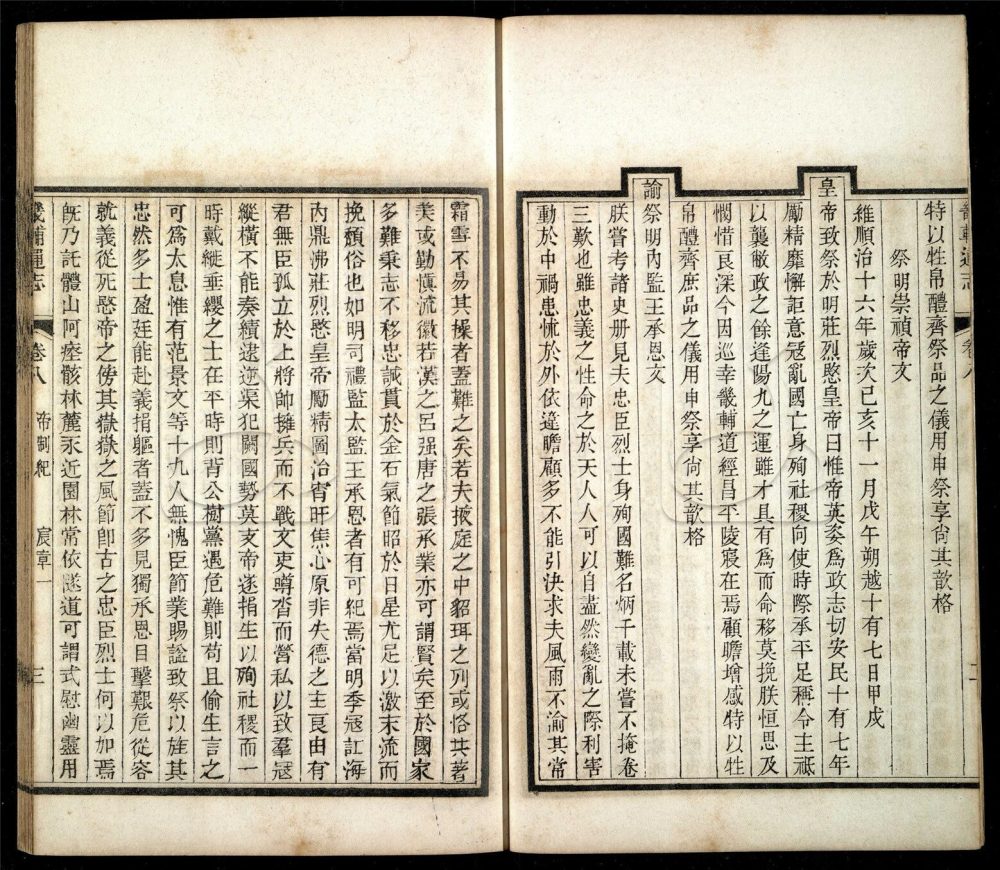 特以牲帛醴齊祭品之儀用申祭享尙其歆格
祭明崇禎帝文
維順治十六年歲次己亥十一月戊午朔越十有七日甲戌
皇帝致祭於明莊烈愍皇帝曰惟帝英姿爲政志切安民十有七年
勵精靡懈詎意寇亂國亡身殉社稷向使時際承平足稱令主祗
以襲敝政之餘逢陽九之運雖才具有爲而命移莫挽朕恒思及
憫惜良深今因巡幸畿輔道經昌平陵寢在焉顧瞻增感特以牲
帛醴齊庶品之儀用申祭享尙其歆格
諭祭明內監王承恩文
朕嘗考諸史册見夫忠臣烈士身殉國難名炳千載未嘗不掩卷
三歎也雖忠義之性命之於天人人可以自盡然變亂之際利害
動於中禍患怵於外依違瞻顧多不能引決求夫風雨不渝其常
霜雪不易其操者蓋難之矣若夫掖庭之中貂珥之列或恪共著
美或勤愼流徽若漢之呂强唐之張承業亦可謂賢矣至於國家
多難秉志不移忠誠貫於金石氣節昭於日星尤足以激末流而
挽頹俗也如明司禮監太監王承恩者有可紀焉當明季寇訌海
內鼎沸莊烈愍皇帝勵精圖治宵旰焦心原非失德之主良由有
君無臣孤立於上將帥擁兵而不戰文吏噂沓而營私以致羣寇
縱橫不能奏績逮逆渠犯闕國勢莫支帝遂捐生以殉社稷而一
時戴縰垂纓之士在平時則背公樹黨遇危難則苟且偷生言之
可爲太息惟有范景文等十九人無愧臣節業賜諡致祭以旌其
忠然多士盈廷能赴義捐軀者蓋不多見獨承恩目擊艱危從容
就義從死愍帝之傍其嶽嶽之風節卽古之忠臣烈士何以加焉
旣乃託體山阿瘞骸林麓永近園林常依隧道可謂式慰幽靈用
畿輔通志 卷八 帝制紀 宸章一 三